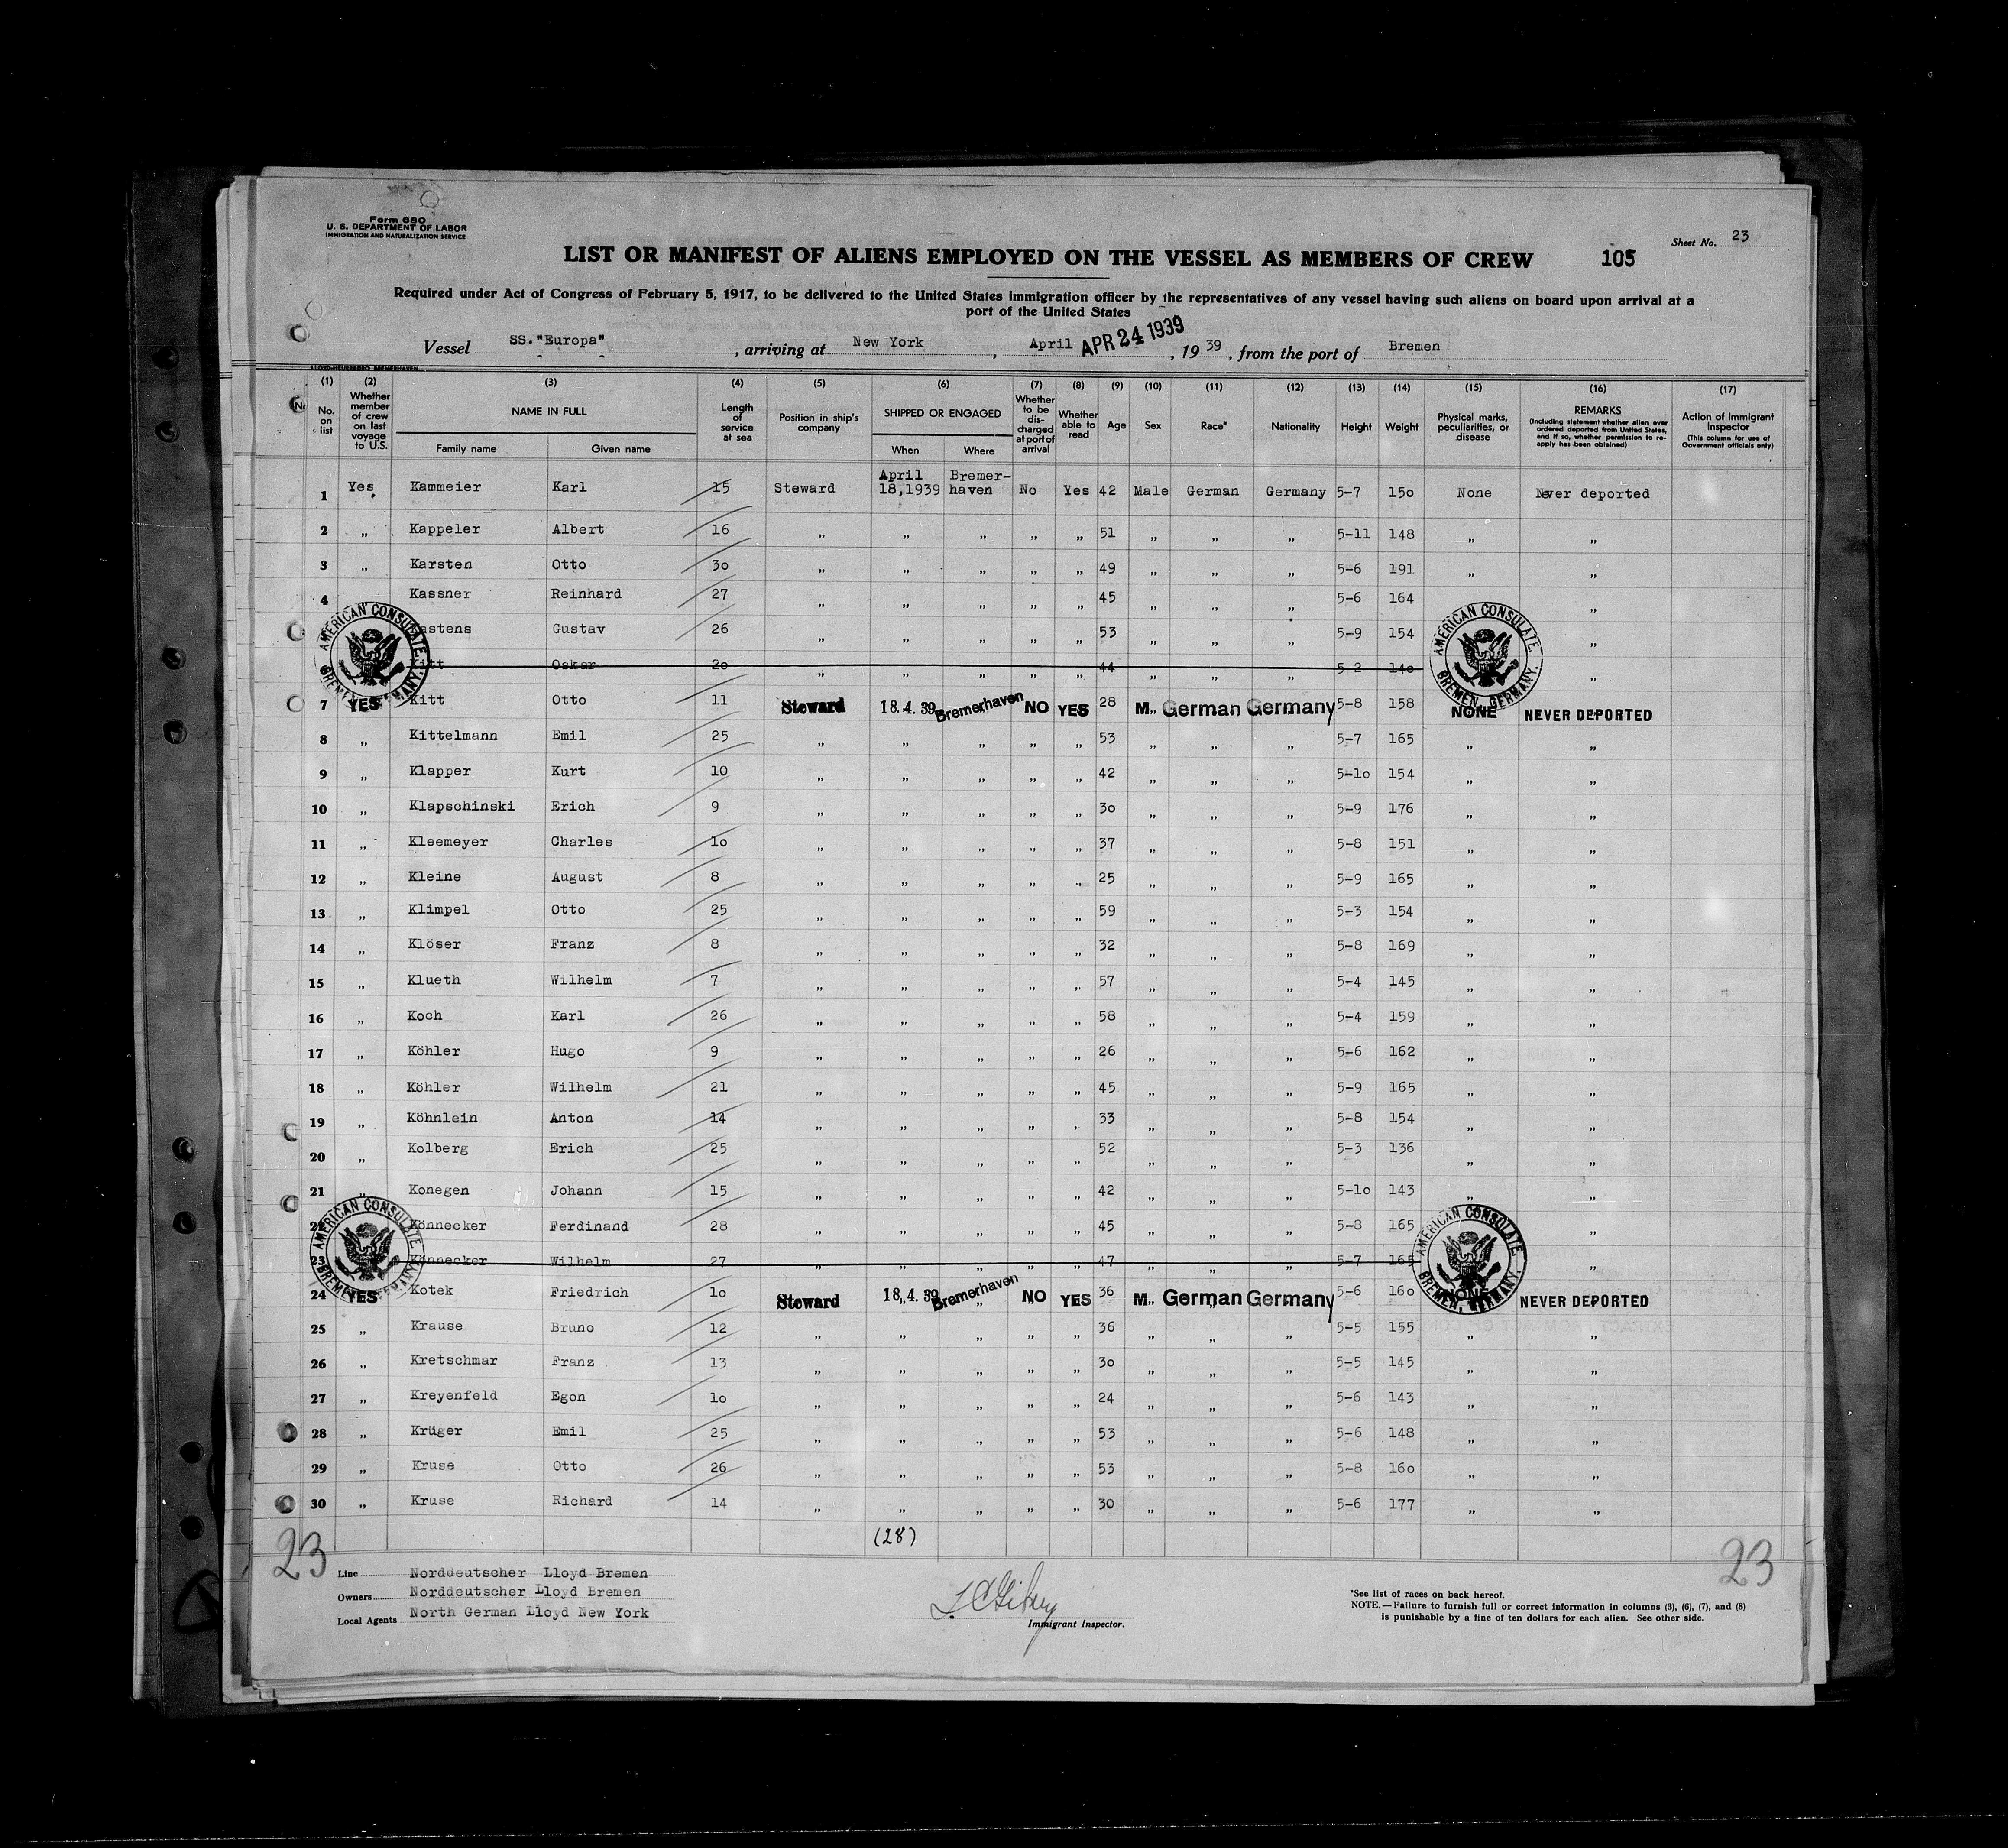 Form 680
U. S. DEPARTMENT OF LABOR
IMMIGRATION AND NATURALIZATION SERVICE
Sheet No. 23
LIST OR MANIFEST OF ALIENS EMPLOYED ON THE VESSEL AS MEMBERS OF CREW 105
Required under Act of Congress of February 5, 1917, to be delivered to the United States immigration officer by the representatives of any vessel having such aliens on board upon arrival at a
port of the United States
Vessel SS. "Europa" , arriving at New York , April APR 24 1939 , 19 39 , from the port of Bremen
(1) (2) (3) (4) (5) (6) (7) (8) (9) (10) (11) (12) (13) (14) (15) (16) (17)
No. on list
Whether member of crew on last voyage to U.S.
NAME IN FULL
Family name Given name
Length of service at sea
Position in ship's company
SHIPPED OR ENGAGED
When Where
Whether to be discharged at port of arrival
Whether able to read
Age Sex Race* Nationality Height Weight
Physical marks, peculiarities, or disease
REMARKS
(Including statement whether alien ever ordered deported from United States, and if so, whether permission to reapply has been obtained)
Action of Immigrant Inspector
(This column for use of Government officials only)
1 Yes Kammeier Karl 15 Steward April 18,1939 Bremerhaven No Yes 42 Male German Germany 5-7 150 None Never deported
2 „ Kappeler Albert 16 „ „ „ „ „ 51 „ „ „ 5-11 148 „ „
3 „ Karsten Otto 30 „ „ „ „ „ 49 „ „ „ 5-6 191 „ „
4 Kassner Reinhard 27 „ „ „ „ „ 45 „ „ „ 5-6 164 „
Gustav 26 „ „ „ „ „ 53 „ „ „ 5-9 154 „
Kitt Oskar 20 „ „ „ „ „ 44 „ „ „ 5-2 140 „
7 YES Kitt Otto 11 Steward 18.4.39 Bremerhaven NO YES 28 M. German Germany 5-8 158 NONE NEVER DEPORTED
8 „ Kittelmann Emil 25 „ „ „ „ „ 53 „ „ „ 5-7 165 „ „
9 „ Klapper Kurt 10 „ „ „ „ „ 42 „ „ „ 5-10 154 „ „
10 „ Klapschinski Erich 9 „ „ „ „ „ 30 „ „ „ 5-9 176 „ „
11 „ Kleemeyer Charles 10 „ „ „ „ „ 37 „ „ „ 5-8 151 „ „
12 „ Kleine August 8 „ „ „ „ „ 25 „ „ „ 5-9 165 „ „
13 „ Klimpel Otto 25 „ „ „ „ „ 59 „ „ „ 5-3 154 „ „
14 „ Klöser Franz 8 „ „ „ „ „ 32 „ „ „ 5-8 169 „ „
15 „ Klueth Wilhelm 7 „ „ „ „ „ 57 „ „ „ 5-4 145 „ „
16 „ Koch Karl 26 „ „ „ „ „ 58 „ „ „ 5-4 159 „ „
17 „ Köhler Hugo 9 „ „ „ „ „ 26 „ „ „ 5-6 162 „ „
18 „ Köhler Wilhelm 21 „ „ „ „ „ 45 „ „ „ 5-9 165 „ „
19 „ Köhnlein Anton 14 „ „ „ „ „ 33 „ „ „ 5-8 154 „ „
20 „ Kolberg Erich 25 „ „ „ „ „ 52 „ „ „ 5-3 136 „ „
21 „ Konegen Johann 15 „ „ „ „ „ 42 „ „ „ 5-10 143 „ „
22 Könnecker Ferdinand 28 „ „ „ „ „ 45 „ „ „ 5-8 165 „
23 Könnecker Wilhelm 27 „ „ „ „ „ 47 „ „ „ 5-7 165 „
24 YES Kotek Friedrich 10 Steward 18.4.39 Bremerhaven NO YES 36 M. German Germany 5-6 160 NONE NEVER DEPORTED
25 „ Krause Bruno 12 „ „ „ „ „ 36 „ „ „ 5-5 155 „ „
26 „ Kretschmar Franz 13 „ „ „ „ „ 30 „ „ „ 5-5 145 „ „
27 „ Kreyenfeld Egon 10 „ „ „ „ „ 24 „ „ „ 5-6 143 „ „
28 „ Krüger Emil 25 „ „ „ „ „ 53 „ „ „ 5-6 148 „ „
29 „ Kruse Otto 26 „ „ „ „ „ 53 „ „ „ 5-8 160 „ „
30 „ Kruse Richard 14 „ „ „ „ „ 30 „ „ „ 5-6 177 „ „
AMERICAN CONSULATE. BREMEN, GERMANY.
AMERICAN CONSULATE. BREMEN, GERMANY.
AMERICAN CONSULATE. BREMEN, GERMANY.
AMERICAN CONSULATE. BREMEN, GERMANY.
(28)
23 23
Line Norddeutscher Lloyd Bremen
Owners Norddeutscher Lloyd Bremen
Local Agents North German Lloyd New York
Immigrant Inspector.
*See list of races on back hereof.
NOTE.—Failure to furnish full or correct information in columns (3), (6), (7), and (8)
is punishable by a fine of ten dollars for each alien. See other side.